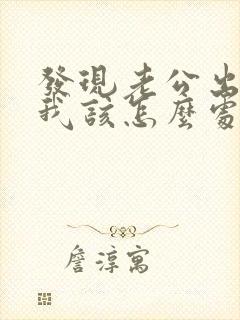 發現老公出
我該怎麼處
詹淳寓